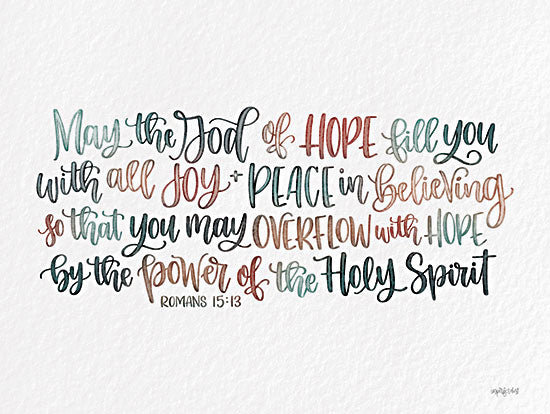 May the God of HOPE fill you
with all JOY + PEACE in Believing
so that you may OVERFLOW with HOPE
by the power of the Holy Spirit
ROMANS 15:13